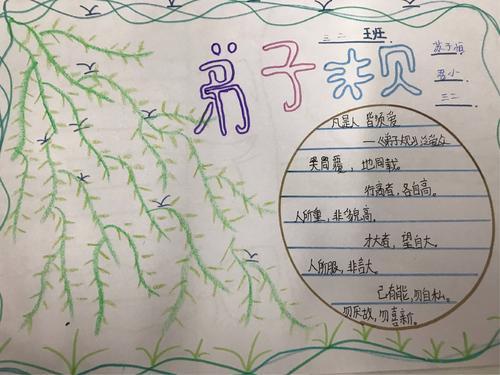 弟子规
三二班
三二
凡是人 皆须爱
天同覆，地同载。
行高者，名自高。
人所重，非貌高。
才大者，望自大。
人所服，非言大。
己有能，勿自私。
勿厌故，勿喜新。